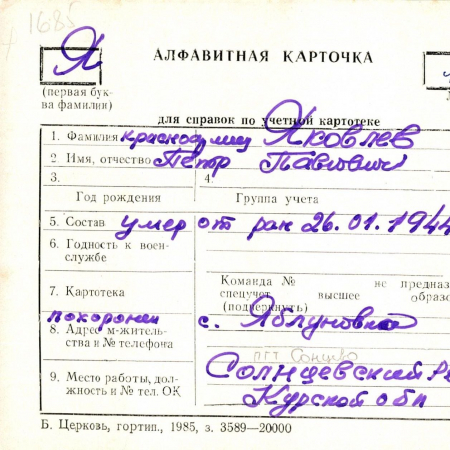 1685
Я
АЛФАВИТНАЯ КАРТОЧКА
(первая бук-
ва фамилии)
для справок по учетной картотеке
1. Фамилия Краснодумц Яковлев
2. Имя, отчество Пётр Павлович
3. 4.
Год рождения Группа учета
5. Состав умер от ран 26.01.1944
6. Годность к воен-
службе
Команда № не предназ
7. Картотека спецучет высшее образо
(подчеркнуть)
похоронен с. Яблуновка
8. Адрес м-житель-
ства и № телефона
пгт Сонцево
Солнцевский Р
9. Место работы, дол-
жность и № тел. ОК Курской обл
Б. Церковь, гортип., 1985, з. 3589—20000